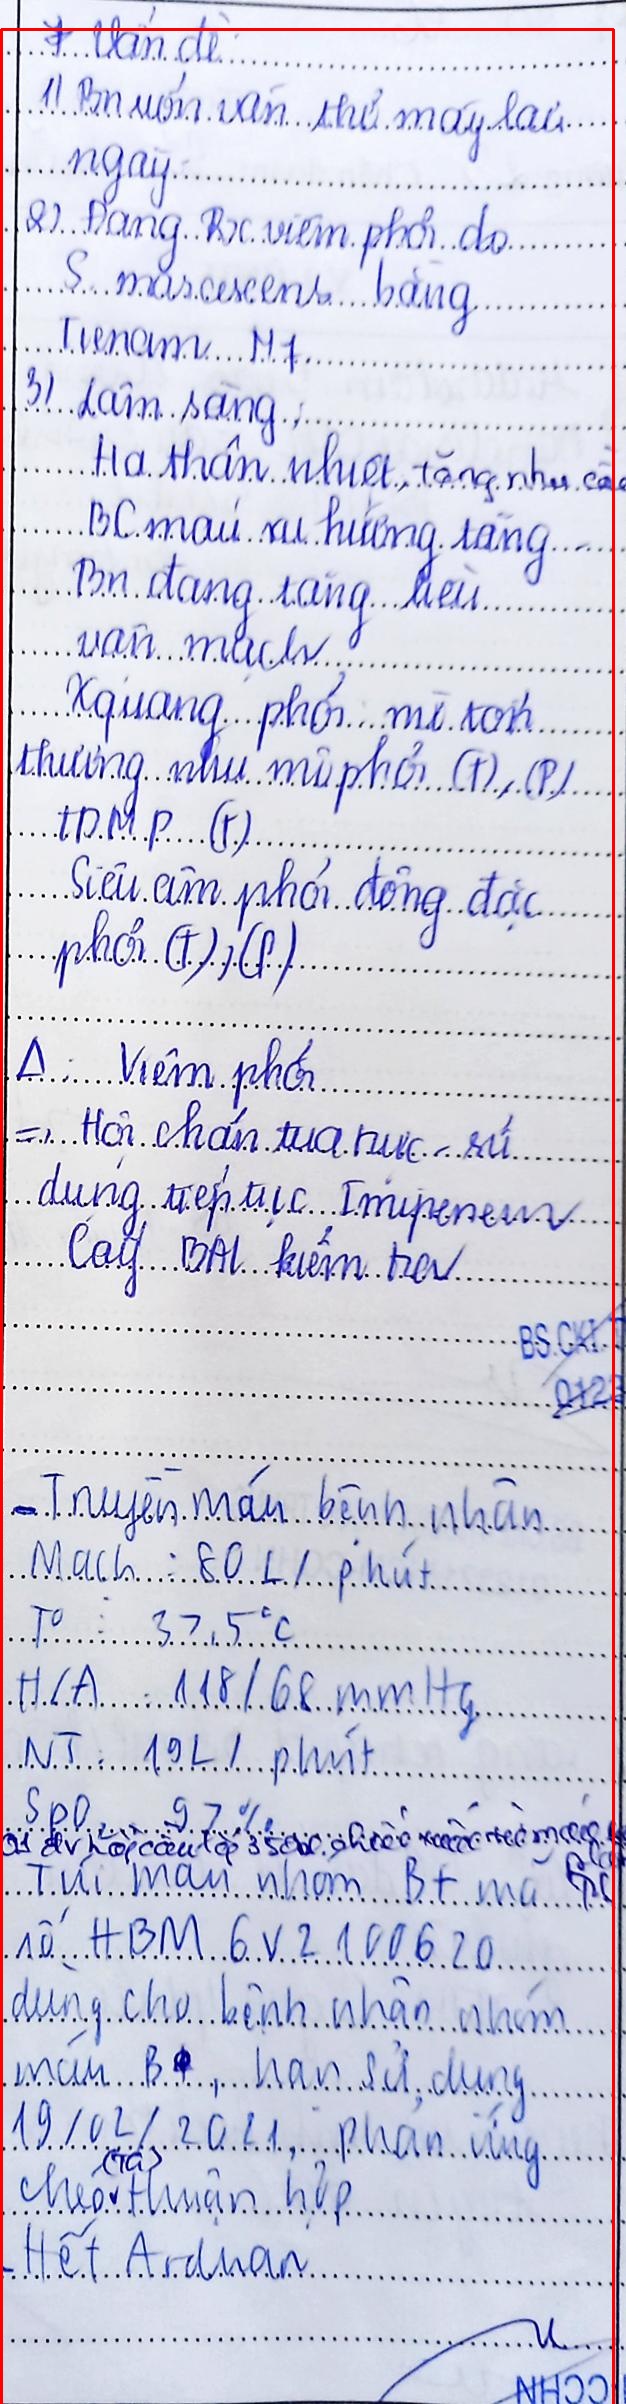 * Vấn đề
1) Bn uốn ván thở máy lâu
ngày
2) Đang Rx viêm phổi do
S. marcescens bằng
Tienam N7
3) Lâm sàng:
Hạ thân nhiệt, tăng nhu cầu
BC máu xu hướng tăng
Bn đang tăng liều
vận mạch
Xquang phổi: mờ tổn
thương nhu mô phổi (T), (P)
TDMP (T)
Siêu âm phổi đông đặc
phổi (T), (P)
Δ: Viêm phổi
=> Hội chẩn tua trực - sử
dụng tiếp tục Imipenem
Cấy BAL kiểm tra
BS.CKI.
0123
- Truyền máu bệnh nhân
Mạch: 80 L/phút
T°: 37,5°C
H/A: 118/68 mmHg
NT: 19L/phút
SpO2 97%
01 đv hồng cầu lắng 350ml
Túi máu nhóm B+ mã
số HBM 6V2100620
dùng cho bệnh nhân nhóm
máu B, hạn sử dụng
19/02/2021, phản ứng
chéo (tá) thuận hợp
- Hết Arduan
CCHN